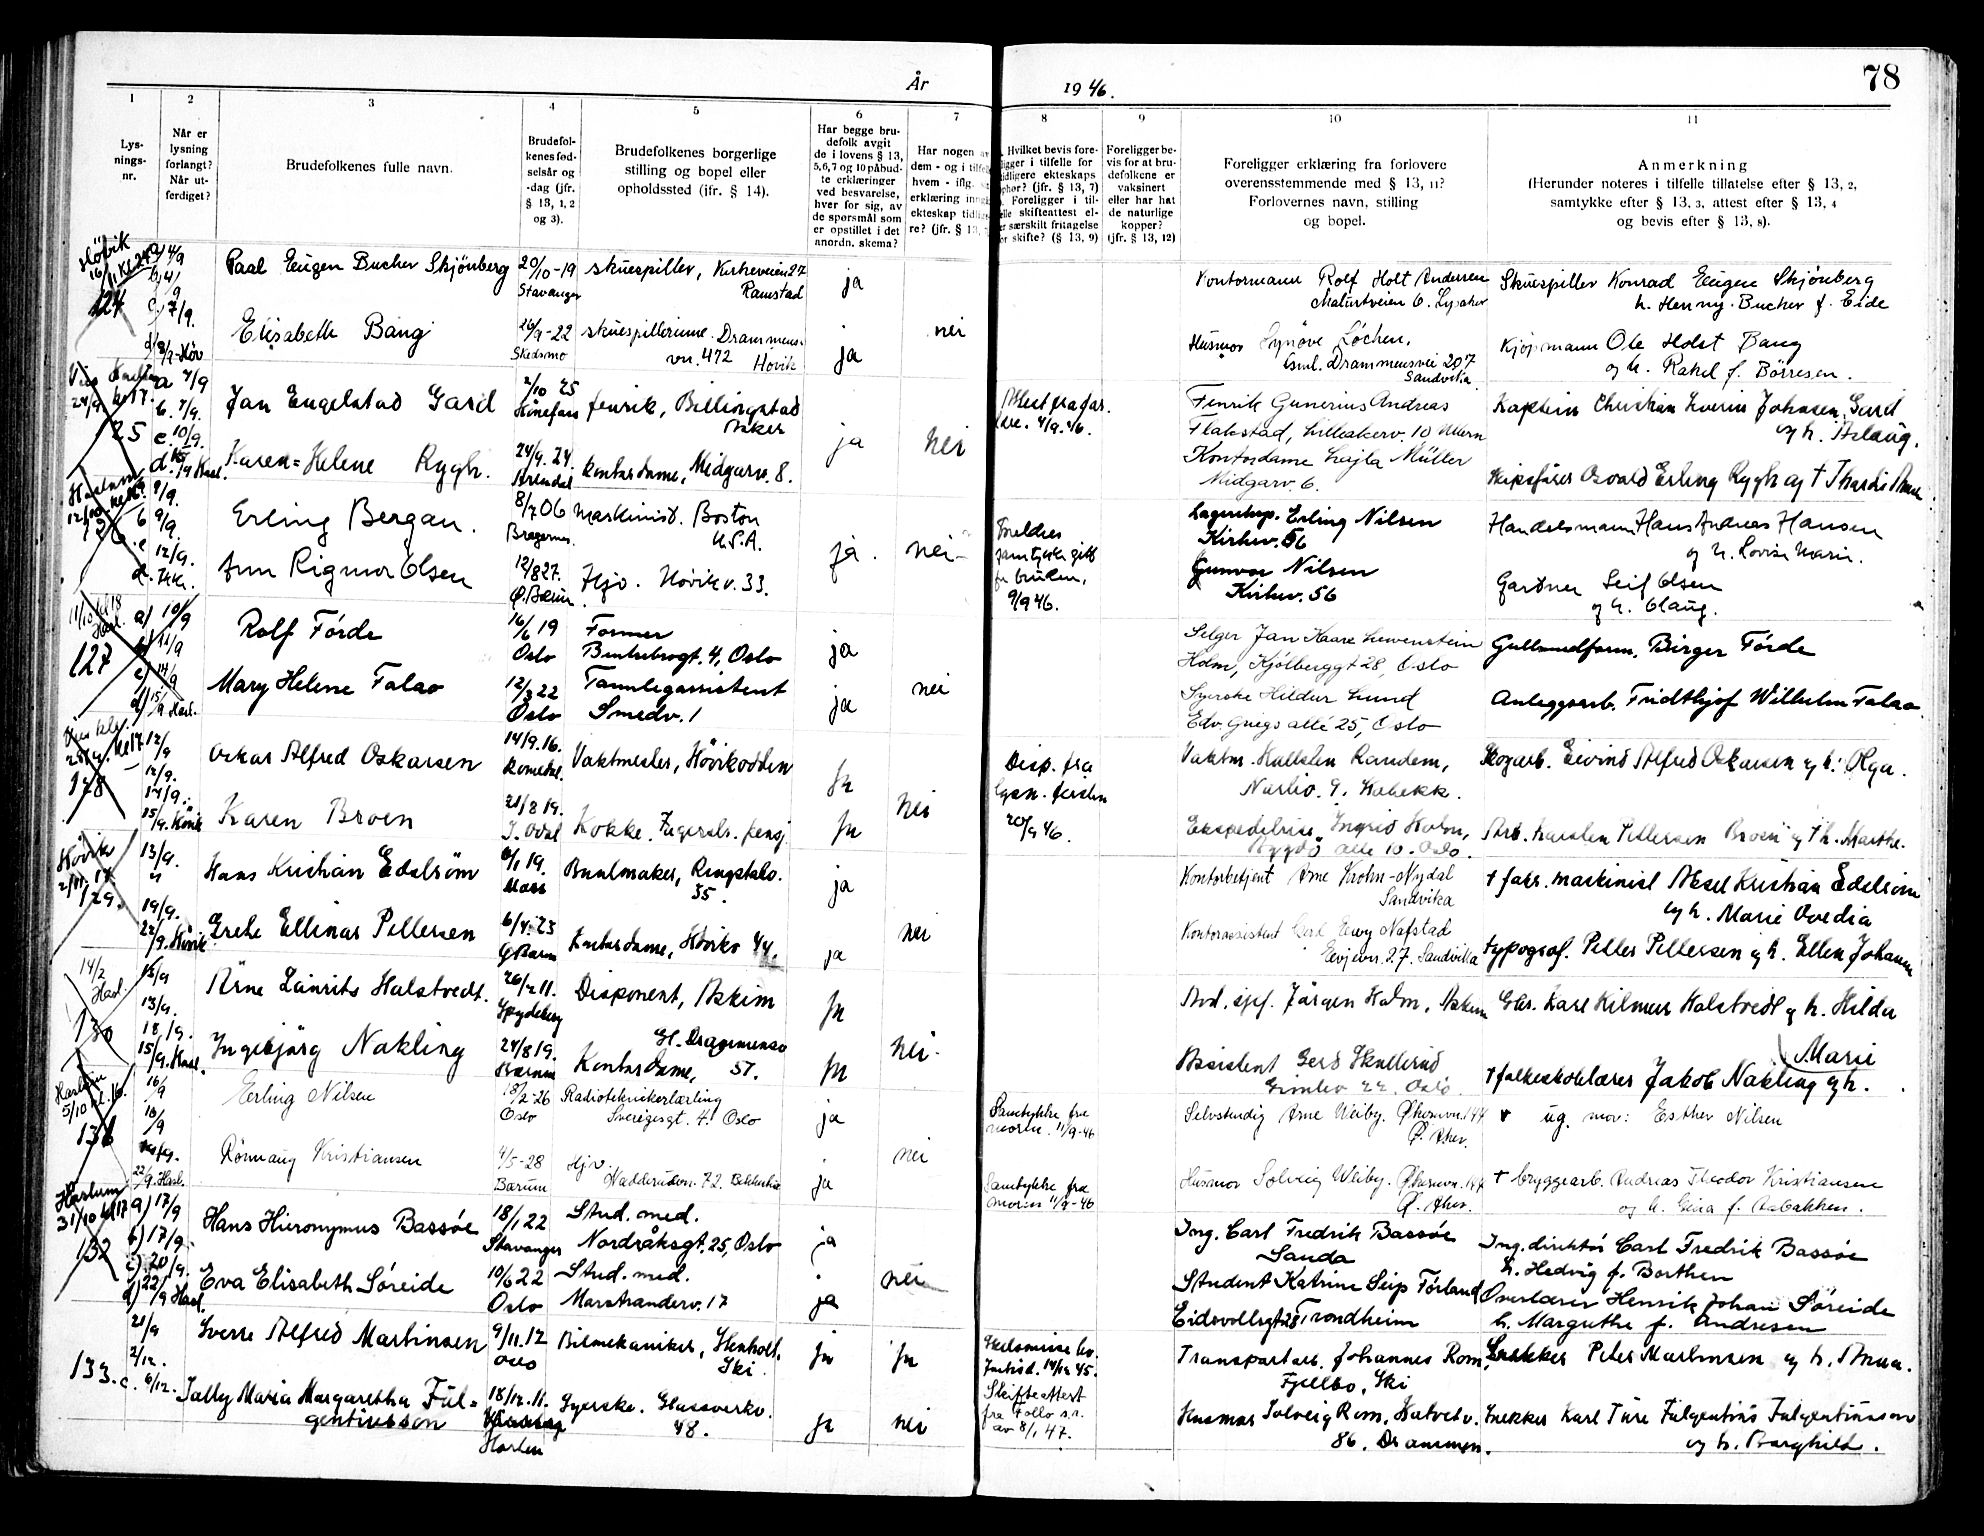 78
År 1946.
1 2 3 4 5 6 7 8 9 10 11
Lys-
nings-
nr.
Når er
lysning
forlangt?
Når ut-
ferdiget?
Brudefolkenes fulle navn.
Brudefol-
kenes fød-
selsår og
-dag (jfr.
§ 13, 1, 2
og 3).
Brudefolkenes borgerlige
stilling og bopel eller
opholdssted (jfr. § 14).
Har begge bru-
defolk avgit
de i lovens § 13,
5,6,7 og 10 påbud-
te erklæringer
ved besvarelse,
hver for sig, av
de spørsmål som
er opstillet i det
anordn. skema?
Har nogen av
dem - og i tilfelle
hvem - iflg.
erklæring inngått
ekteskap tidlige-
re? (jfr. § 13,
Hvilket bevis fore-
ligger i tilfelle for
tidligere ekteskaps
ophør? (jfr. § 13, 7)
Foreligger i til-
felle skifteattest el-
ler særskilt fritagelse
for skifte? (§ 13, 9)
Foreligger be-
vis for at bru-
defolkene er
vaksinert
eller har hat
de naturlige
kopper?
(jfr. § 13, 12)
Foreligger erklæring fra forlovere
overensstemmende med § 13, 11?
Forlovernes navn, stilling
og bopel.
Anmerkning
(Herunder noteres i tilfelle tillatelse efter § 13, 2,
samtykke efter § 13, 3, attest efter § 13, 4
og bevis efter § 13, 8).
Høvik
124
4/9
7/9.
Paal Eugen Bucher Skjönberg
20/10-19
Stavanger
skuespiller, Kirkeveien 27
Ramstad
ja
Kontormann Rolf Holt Andersen
6. Lysaker
Skuespiller Konrad Eugen Skjönberg
h. Henny Bucher f. Eide
Elisabeth Bang
26/9-22
Skedsmo
skuespillerinne. Drammens-
vn. 472 Høvik
ja
nei
Husmor Synöve Løchen,
Gml. Drammensvei 207
Sandvika
Kjöpmann Ole Holst Bang
og h. Rakel f. Börresen.
125
a 7/9
b. 7/9.
c. 10/9.
Jan Engelstad Gard
2/10 25
Hönefoss
fenrik, Billingstad
Asker
ja
nei
4/9.46.
Fenrik Gunerius Andreas
Flakstad, Lilleakerv. 10 Ullern
Kaptein Christian Sverin Johnsen Gard
og h. Aslaug.
Karen-Helene Rygh.
24/9. 24.
Arendal
kontordame, Midgarv. 8.
Kontordame Lajla Müller
Midgarv. 6.
Skipsfører Osvald Erling Rygh og † Thordis
Haslum
126
9/9.
b 9/9.
c 12/9.
Erling Bergan.
8/7 06
Bragernes
Maskinist. Boston
U.S.A.
ja.
nei-
Foreldres
samtykke gitt
for bruden,
9/9 46.
Lagereksp. Erling Nilsen
Kirkev. 56
Handelsmann Hans Andreas Hansen
og h. Lovise Marie.
Ann Rigmor Olsen
12/8 27.
Ø. Bærum
Hjv. Høvikv. 33.
Gunvor Nilsen
Kirkev. 56
Gartner Leif Olsen
og h. Olaug.
11/10 kl 18
Hasl.
127
a) 10/9
b) 11/9
c) 14/9
d) 15/9 Hasl.
Rolf Förde
16/6 19
Oslo
Former
Bentsebrogt. 4, Oslo
ja
Selger Jan Kaare Lewenstein
Holm, Kjölberggt 28, Oslo
Gullsmedform. Birger Förde
Mary Helene Falao
12/3 22
Oslo
Tannlegassistent
Smedv. 1
ja
nei
Syerske Hildur Lund
Edv. Griegs allé 25, Oslo
Anleggsarb. Fridthjof Wilhelm Falao
128
12/9
12/9.
14/9.
15/9. Høvik
Oskar Alfred Oskarsen
14/9.16.
Romedal.
Vaktmester, Høvikodden
ja
Disp. fra
20/9 46.
Vaktm. Hallsten Randem,
9. Stabekk.
Skogarb. Eivind Alfred Oskarsen og h. Olga.
Karen Broen
21/8 19.
Kokke.
ja
nei
Ekspeditrise Ingrid Holm,
Bygdö alle 10. Oslo.
Arb. Karsten Pettersen Broen og † h. Marthe.
Høvik
2/11. 17
129.
13/9.
19/9.
22/9. Høvik
Hans Kristian Edström
6/1 19.
Moss
Buntmaker, Ringstabv.
35.
ja
Kontorbetjent Arne Krohn-Nydal
Sandvika
† fabr. maskinist Aksel Kristian Edström
og h. Marie Ovedia
Grethe Ellinor Pettersen
6/4. 23
Kontordame, Høvikv 44.
ja
nei
Kontorassistent Gerd Eevy Nafstad
Eevjevn. 27. Sandvika
typograf. Petter Pettersen og h. Ellen Johanne
14/2
Hasl.
130
13/9.
18/9.
15/9. Hasl.
Arne Laurits Halstvedt.
Spydeberg
Disponent, Askim
ja
Avd. sjef. Jörgen Holm, Askim
Gbr. Karl Hilmer Halstvedt og h. Hilda
Marie
Ingebjörg Nakling
24/8 19.
Bærum
Gl. Drammensv
Kontordame, 57.
ja
nei-
Assistent Gerd Skullerud
22. Oslo.
† folkeskolelærer Jakob Nakling og h.
Haslum
5/10 kl. 16.
131
16/9
16/9
22/9. Hasl.
Erling Nilsen
18/2-26
Oslo
Radioteknikerlærling
Sverigesgt. 4. Oslo
ja
Samtykke fra
moren. 11/9-46
Selvstendig Arne Weiby.
Ø. Aker.
ug. mor: Esther Nilsen
Rönnaug Kristiansen
4/5-28
Bærum
Hjv.
Nadderudvn. 72. Bekkestua
ja
nei
Samtykke fra
moren 11/9-46
Husmor Solveig Weiby.
Ø. Aker.
† bryggearb. Andreas Theodor Kristiansen
og h. Gina f. Aabakken.
Haslum
31/10 kl 17
132
a) 17/9
b) 17/9.
c) 20/9.
d) 22/9 Hasl.
Hans Hieronymus Bassöe
18/1 22
Stavanger
Stud. med.
Nordråksgt. 25, Oslo
ja
Ing. Carl Fredrik Bassöe
Sauda
Ing. direktör Carl Fredrik Bassöe
h. Hedvig f. Borthen
Eva Elisabeth Söreide
10/6 22
Oslo
Stud. med.
Marstranderv. 17
ja
nei
Student Katrine Seip Förland
Eidsvollsgt 28, Trondheim
Overlærer Henrik Johan Söreide
h. Margrethe f. Andresen
133.
21/9
2/12.
c. 6/12.
Sverre Alfred Martinsen
9/11.12
Oslo
Bilmekaniker,
Ski.
ja
ja
Skilsmisse bev.
14/12 45.
Skifteattest
fra Follo s.r.
av 8/1 47.
Transportarb. Johannes Rom,
Fjellbo, Ski
Snekker Peter Martinsen og h. Anna.
Sally Maria Margaretha Ful-
gentiusson
18/12. 11.
Horten
Syerske. Glassverkv.
48.
ja
nei
Husmor Solveig Rom, Hatvetv.
86. Drammen.
Snekker Karl Ture Fulgentius Fulgentiusson
og h. Borghild.